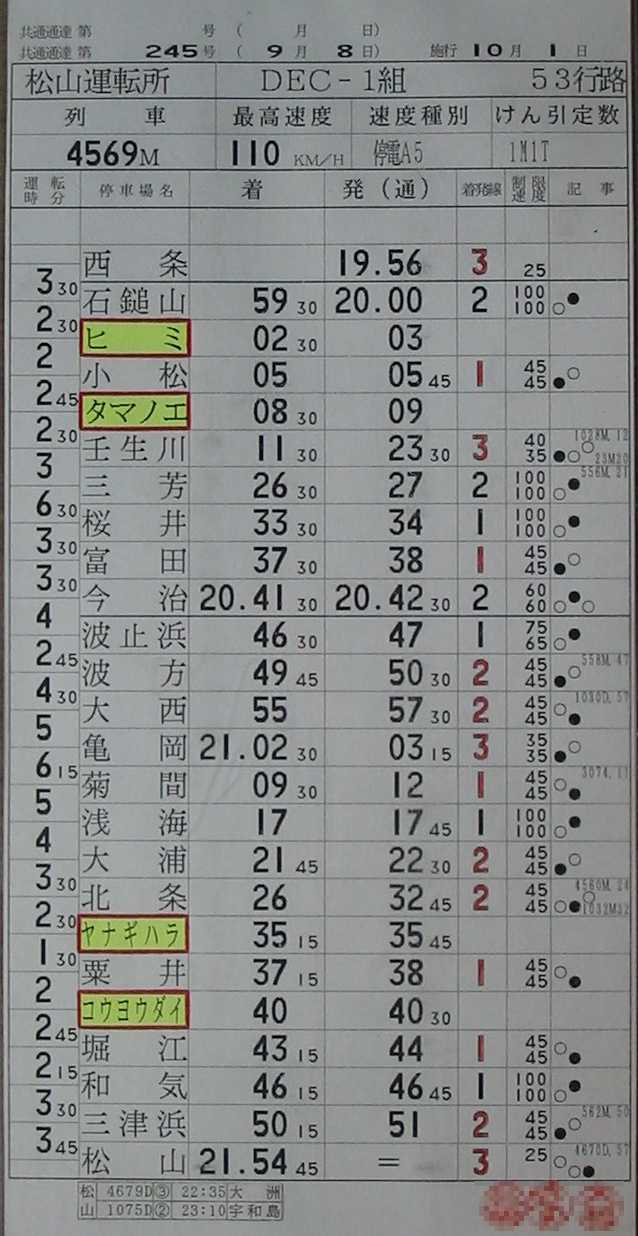 共通通達 第 号 ( 月 日)
共通通達 第 245 号 ( 9 月 8 日) 施行 10 月 1 日
松山運転所 DEC-1組 53行路
列車 最高速度 速度種別 けん引定数
4569M 110 KM/H 停電A5 1M1T
運転時分 停車場名 着 発(通) 着発線 制限速度 記事
西条 19.56 3 25
3 30
石鎚山 59 30 20.00 2 100 100 ○●
2 30
ヒミ 02 30 03
2
小松 05 05 45 1 45 45 ●○
2 45
タマノエ 08 30 09
2 30
壬生川 11 30 23 30 3 40 35 ●○○ 1028M.12 23M20
3
三芳 26 30 27 2 100 100 ○● 556M.21
6 30
桜井 33 30 34 1 100 100 ○●
3 30
富田 37 30 38 1 45 45 ●○
3 30
今治 20.41 30 20.42 30 2 60 60 ○●○
4
波止浜 46 30 47 1 75 65 ○●
2 45
波方 49 45 50 30 2 45 45 ●○ 558M.47
4 30
大西 55 57 30 2 45 45 ○● 1030D.57
5
亀岡 21.02 30 03 15 3 35 35 ●○
6 15
菊間 09 30 12 1 45 45 ○● 3074.11
5
浅海 17 17 45 1 100 100 ○●
4
大浦 21 45 22 30 2 45 45 ●○
3 30
北条 26 32 45 2 45 45 ○●○ 4560M.24 1032M32
2 30
ヤナギハラ 35 15 35 45
1 30
粟井 37 15 38 1 45 45 ○●
2
コウヨウダイ 40 40 30
2 45
堀江 43 15 44 1 45 45 ○●
2 15
和気 46 15 46 45 1 100 100 ○●
3 30
三津浜 50 15 51 2 45 45 ●○ 562M.50
3 45
松山 21.54 45 = 3 25 ○○● 4670D.57
松 4679D③ 22:35 大洲
山 1075D② 23:10 宇和島